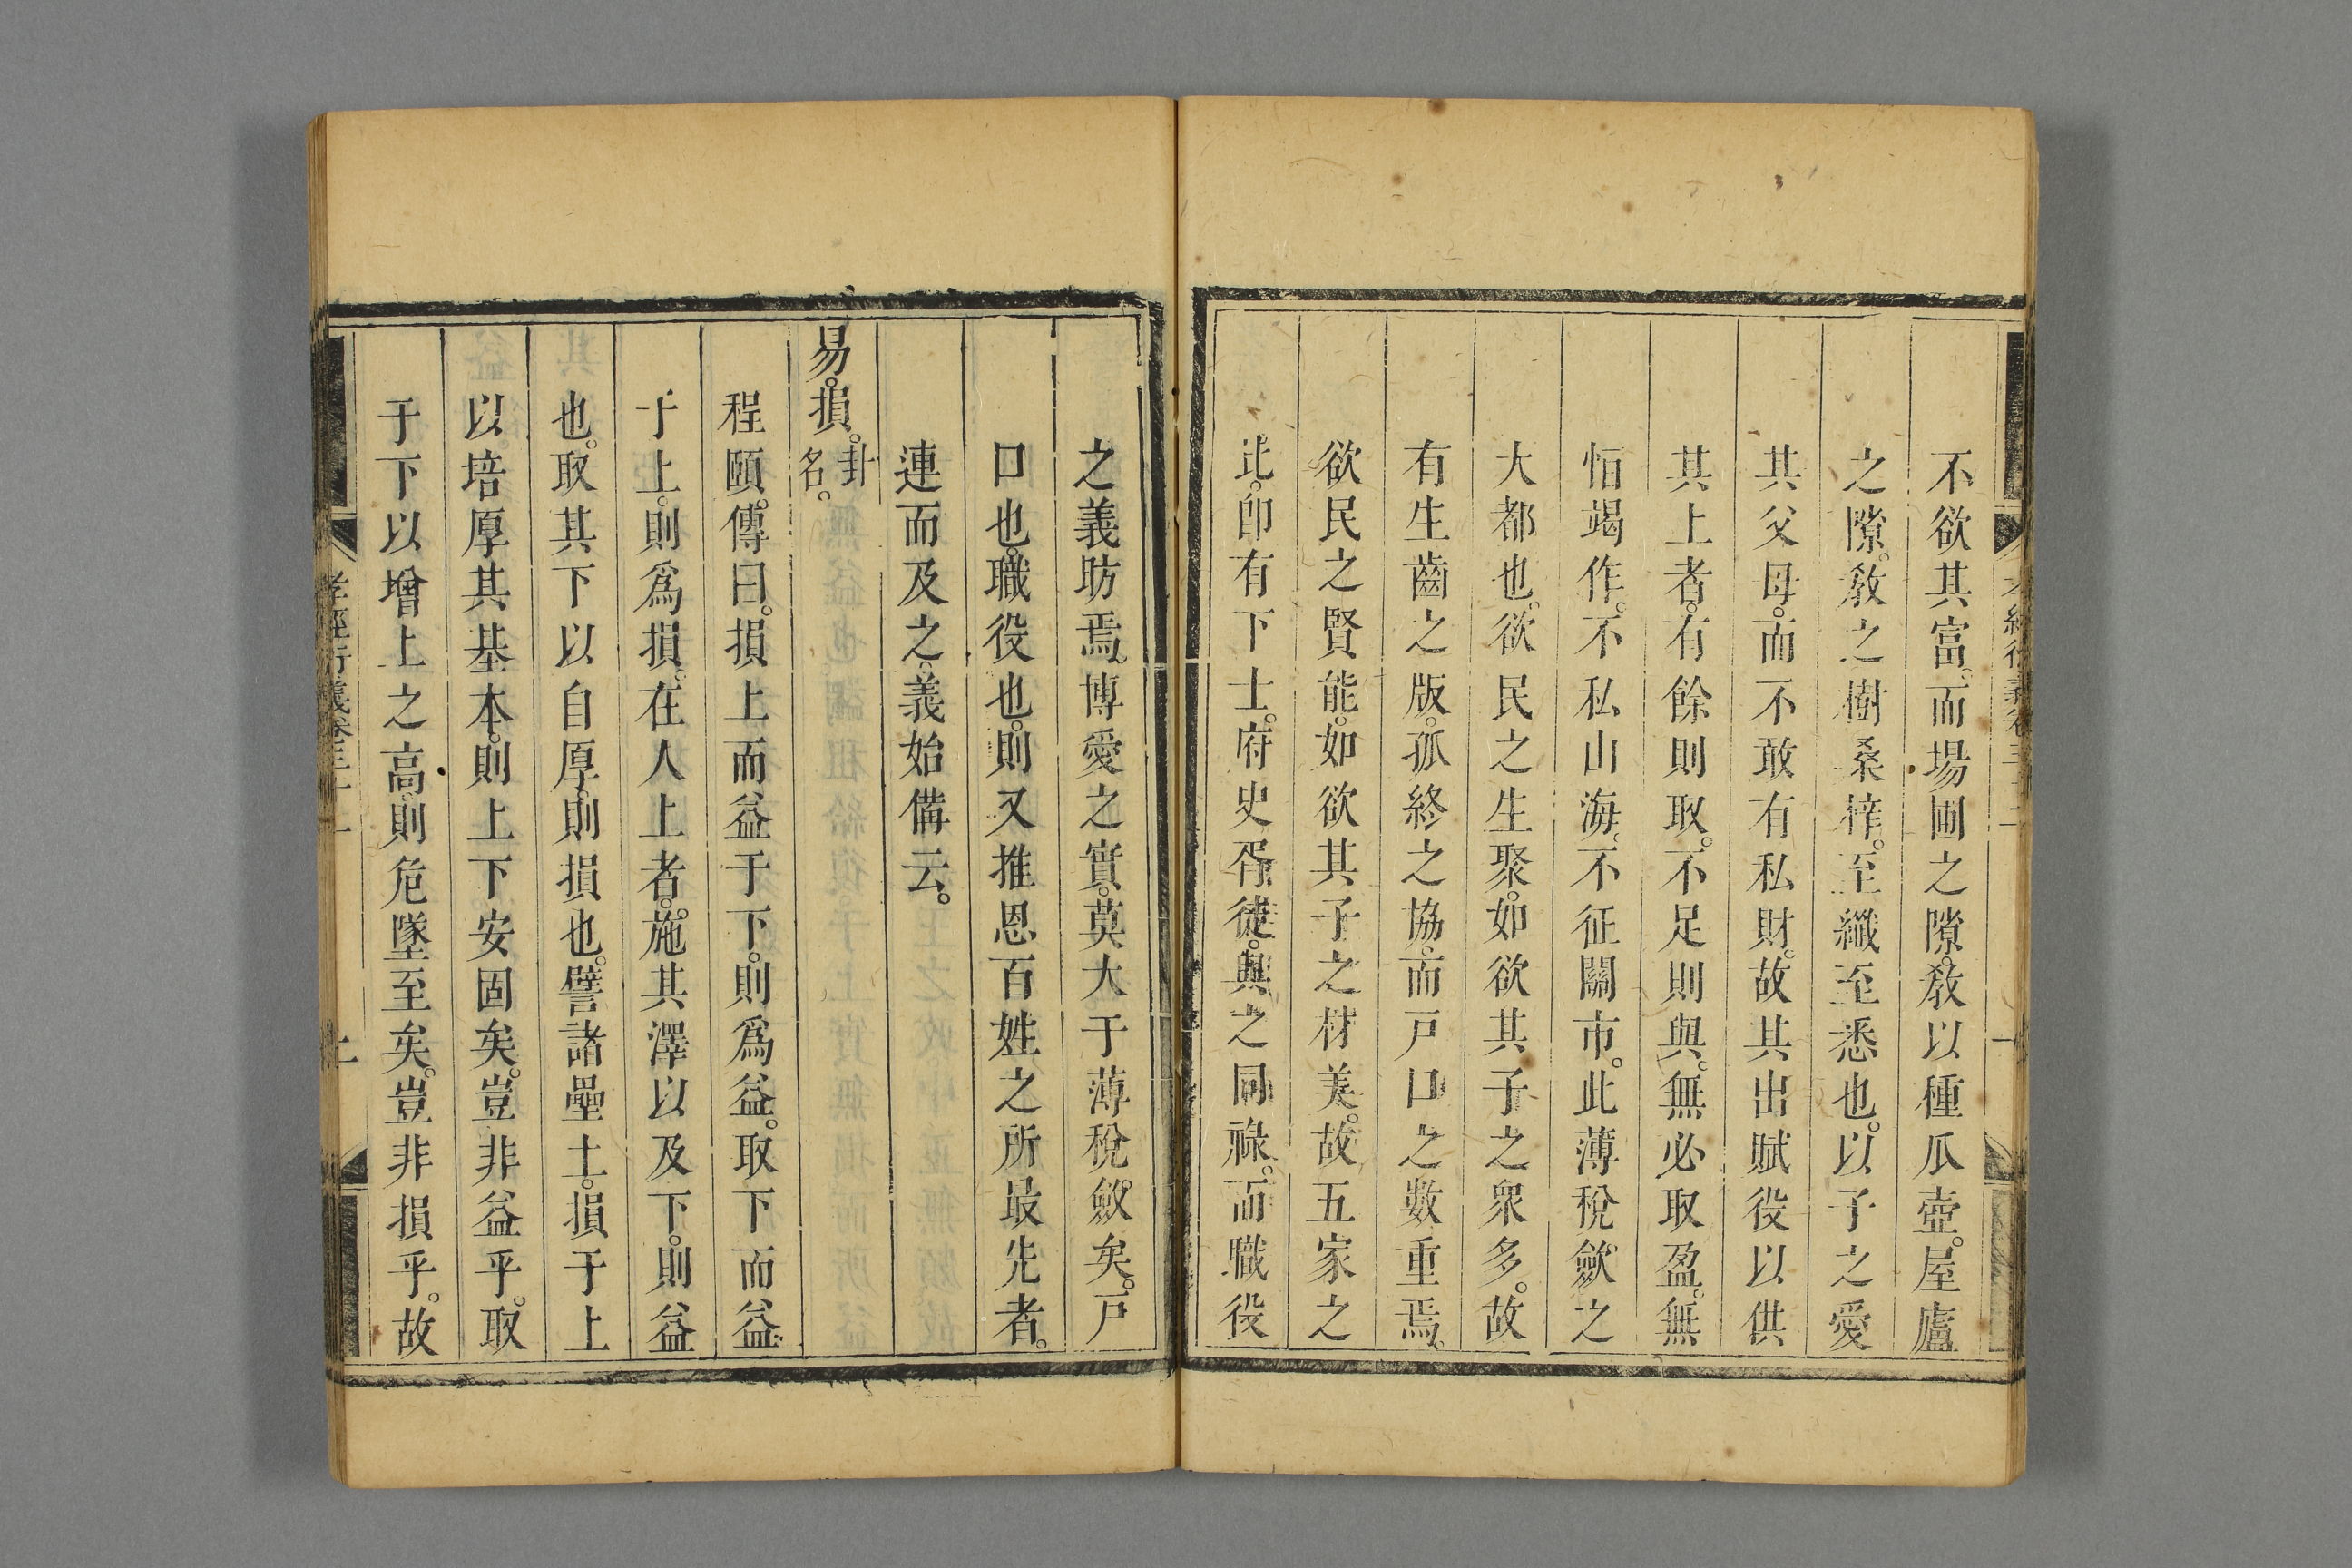 不欲其富。而場圃之隙。教以種瓜壺。屋廬
之隙。教之樹桑梓。至纖至悉也。以子之愛
其父母。而不敢有私財。故其出賦役以供
其上者。有餘則取。不足則與。無必取盈。無
怕竭作。不私山海。不征關市。此薄稅斂之
大都也。欲民之生聚。如欲其子之衆多。故
有生齒之版。孤終之協。而戸口之數重焉。
欲民之賢能。如欲其子之材美。故五家之
比。卽有下士。府史胥徒。與之同祿。而職役
之義昉焉。博愛之實。莫大于薄稅斂矣。戸
口也。職役也。則又推恩百姓之所最先者。
連而及之。義始備云。
易。損。卦名。
程頤。傳曰。損上而益于下。則爲益。取下而益
于上。則爲損。在人上者。施其澤以及下。則益
也。取其下以自厚。則損也。譬諸壘土。損于上
以培厚其基本。則上下安固矣。豈非益乎。取
于下以增上之高。則危墜至矣。豈非損乎。故
孝經衍義卷三十二